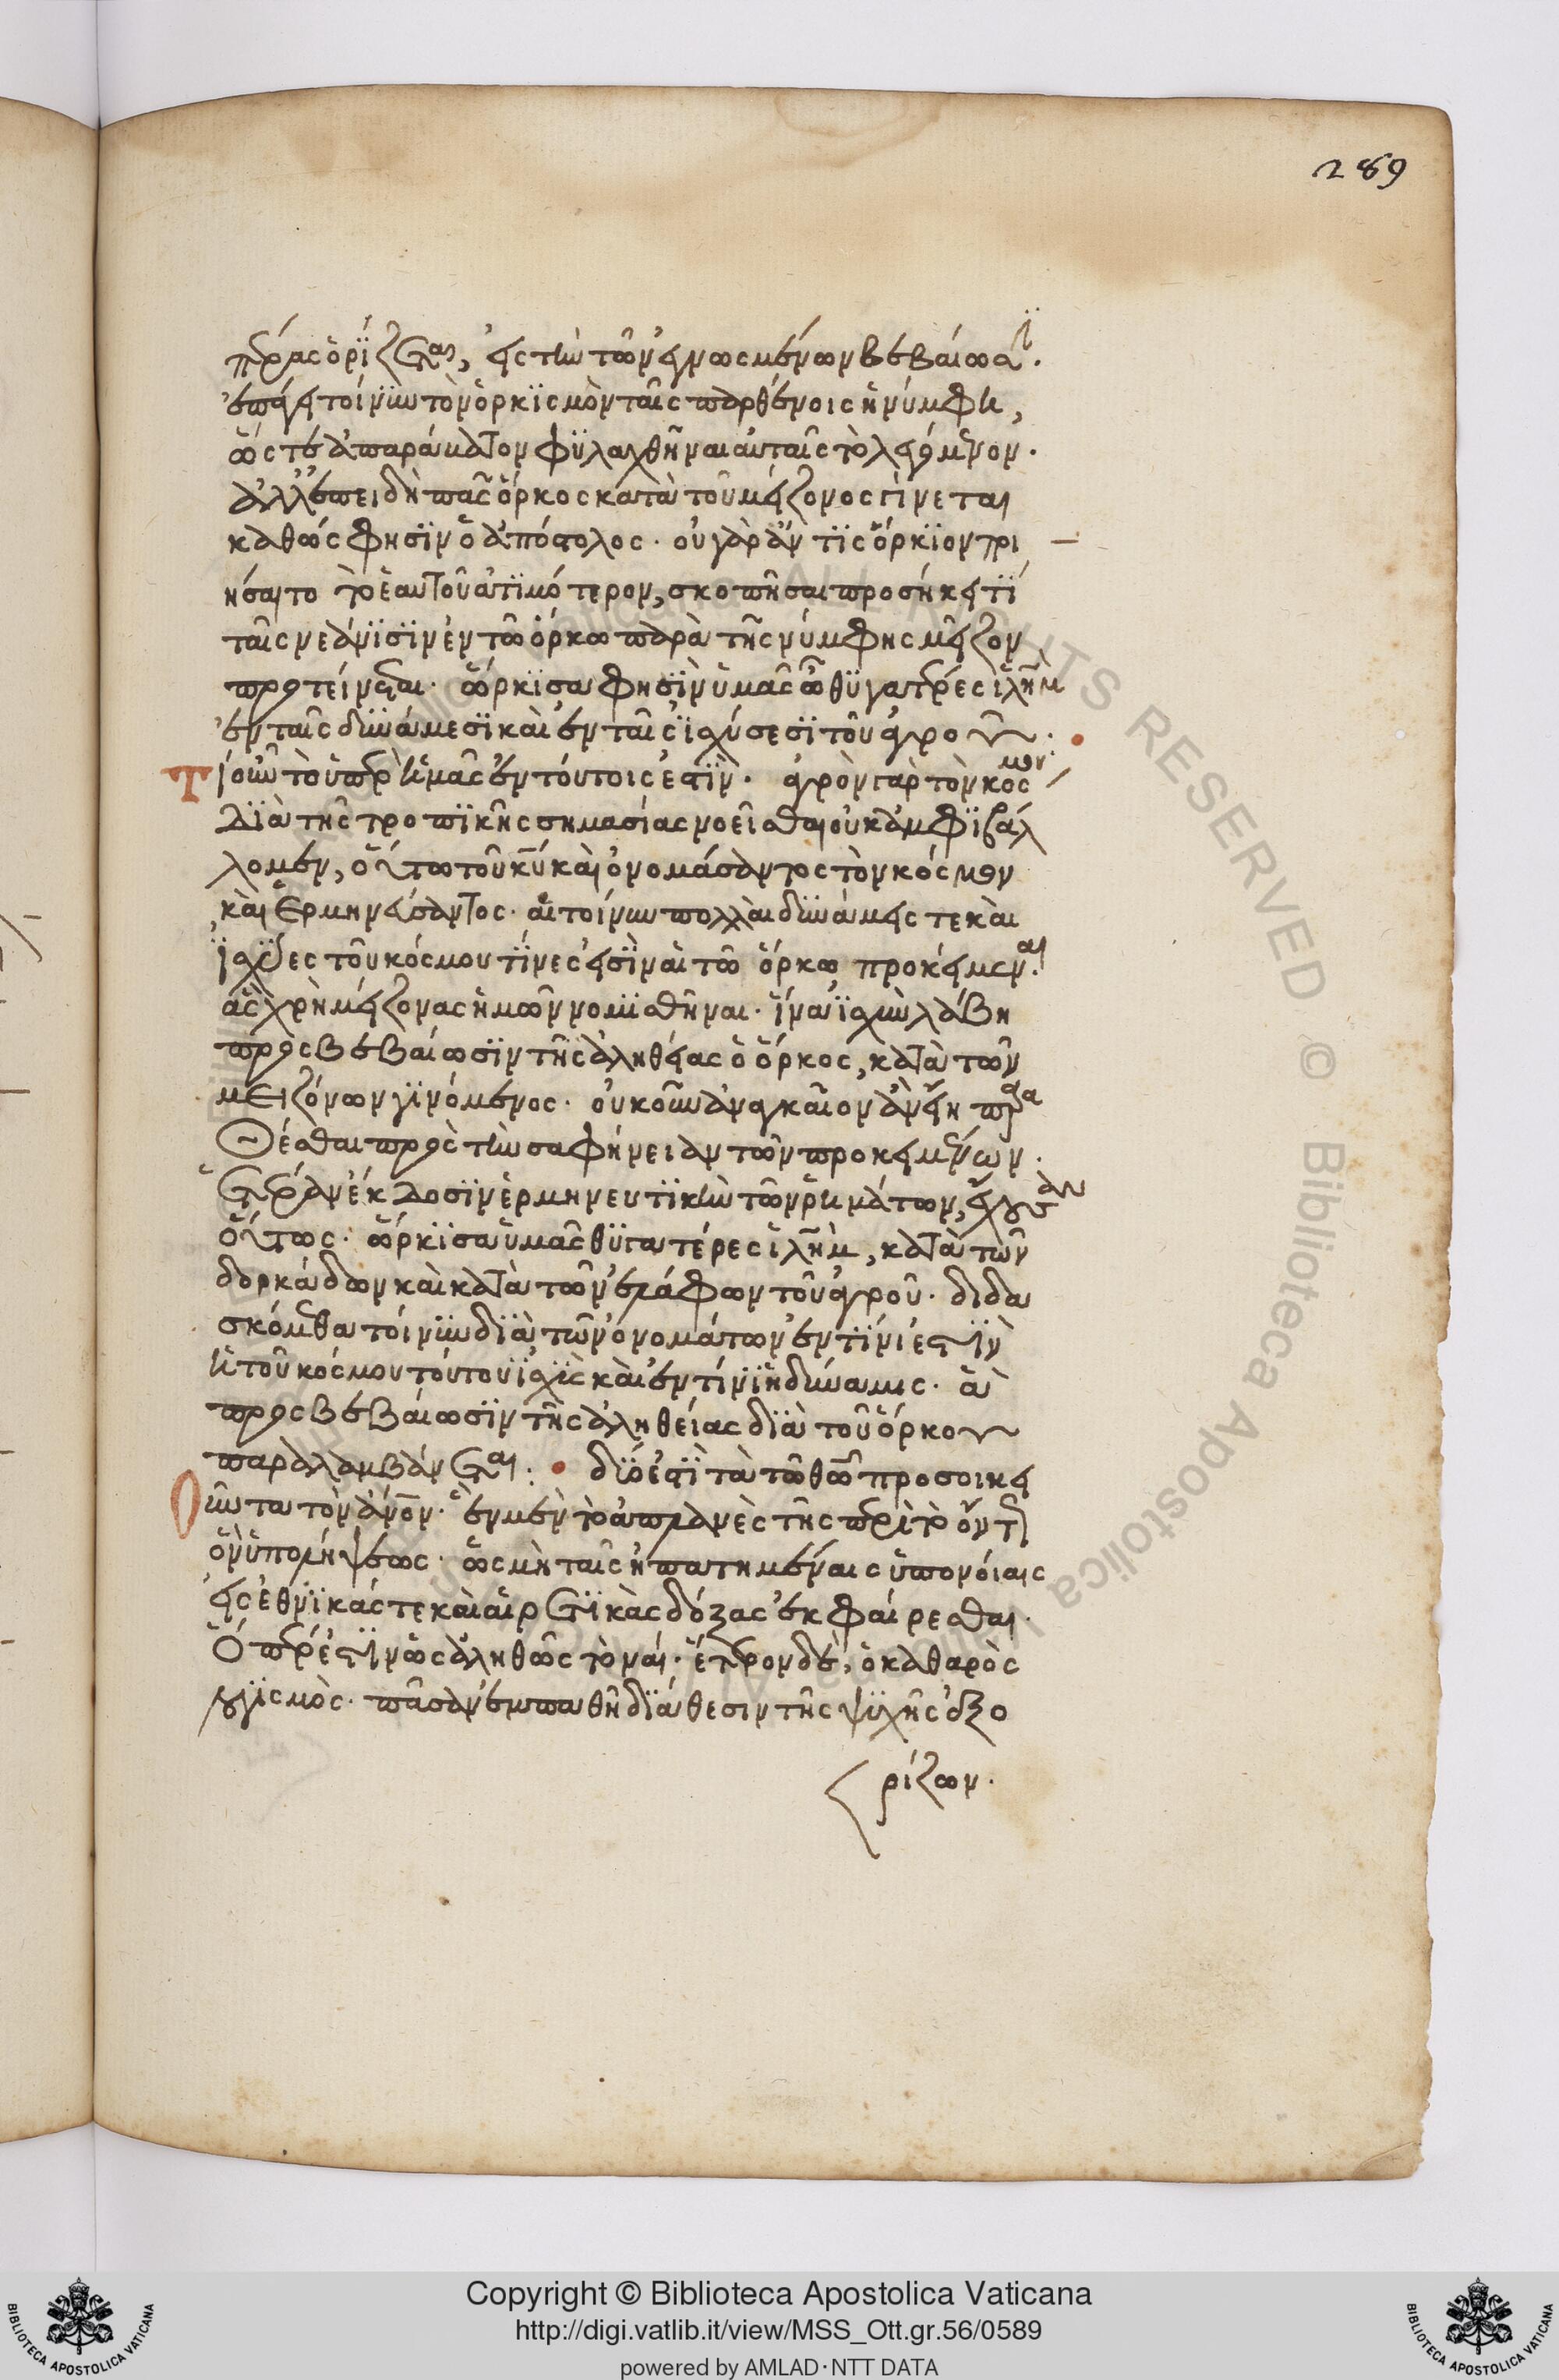 289
πέρας ὁρίζεται, εἰς τὴν τῶν ἐγνωσμένων βεβαίωσιν.
ἐπάγει τοίνυν τὸν ὁρκισμὸν ταῖς παρθένοις ἡ νύμφη,
ὥστε ἀπαράβατον φυλαχθῆναι αὐταῖς τὸ λεγόμενον.
ἀλλ' ἐπειδὴ πᾶς ὅρκος κατὰ τοῦ μείζονος γίνεται
καθώς φησιν ὁ ἀπόστολος. οὐ γὰρ ἄν τις ὅρκιον ποι
ήσαιτο τὸ ἑαυτοῦ ἀτιμότερον, σκοπῆσαι προσήκει τί
ταῖς νεάνισιν ἐν τῶ ὅρκω παρὰ τῆς νύμφης μεῖζον
προτείνεται. ὥρκισα φησὶν ὑμᾶς ὦ θυγατέρες ἱλῆμ
ἐν ταῖς δυνάμεσι καὶ ἐν ταῖς ἰσχύσεσι τοῦ ἀγροῦ.
Τί οὖν τὸ ὑπὲρ ἡμᾶς ἐν τούτοις ἐστὶν. ἀγρὸν γὰρ τὸν κόσμον
διὰ τῆς τροπικῆς σημασίας νοεῖσθαι οὐκ ἀμφιβάλ
λομεν, οὕτω τοῦ κυ καὶ ὀνομάσαντος τὸν κόσμον
καὶ ἑρμηνεύσαντος. αἱ τοίνυν πολλαὶ δυνάμεις τε καὶ
ἰσχύες τοῦ κόσμου τίνες εἰσὶν αἱ τῶ ὅρκω προκείμεναι.
ἃς χρὴ μείζονας ἡμῶν νομισθῆναι. ἵνα ἰσχὺν λάβη
πρὸς βεβαίωσιν τῆς ἀληθείας ὁ ὅρκος, κατὰ τῶν
μειζόνων γινόμενος. οὐκοῦν ἀναγκαῖον ἂν εἴη παρα
θέσθαι πρὸς τὴν σαφήνειαν τῶν προκειμένων.
ἑτέραν ἔκδοσιν ἑρμηνευτικὴν τῶν ῥημάτων, ἔχουσαν
οὕτως. ὥρκισα ὑμᾶς θυγατέρες ἱλῆμ, κατὰ τῶν
δορκάδων καὶ κατὰ τῶν ἐλάφων τοῦ ἀγροῦ. διδα
σκόμεθα τοίνυν διὰ τῶν ὀνομάτων ἐν τίνι ἐστὶν
ἡ τοῦ κόσμου τούτου ἰσχὺς καὶ ἐν τίνι ἡ δύναμις. ἃ
πρὸς βεβαίωσιν τῆς ἀληθείας διὰ τοῦ ὅρκου
παραλαμβάνεται: δύο ἐστὶ τὰ τῶ θῶ προσοικει
οῦντα τὸν ἄνον. ἓν μὲν τὸ ἀπλανὲς τῆς περὶ τὸ ὄντως
ὂν ὑπολήψεως. ὡς μὴ ταῖς ἠπατημέναις ὑπονοίαις
εἰς ἐθνικάς τε καὶ αἱρετικὰς δόξας ἐκφαίρεσθαι.
Ὅπερ ἐστὶν ὡς ἀληθῶς τὸ ναί. ἕτερον δὲ, ὁ καθαρὸς
λογισμὸς. πᾶσαν ἐμπαθῆ διάθεσιν τῆς ψυχῆς ἐξο
ρίζων.
Copyright © Biblioteca Apostolica Vaticana
http://digi.vatlib.it/view/MSS_Ott.gr.56/0589
powered by AMLAD·NTT DATA